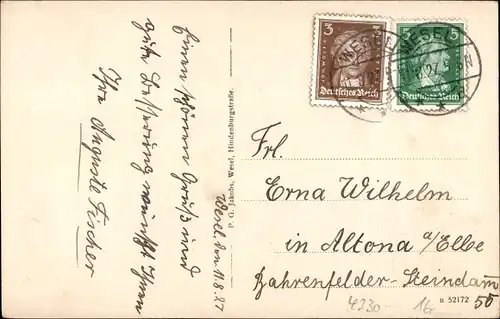 Wesel, den 11.8.27
Einen schönen Gruß und
gute Besserung wünscht Ihnen
Ihre Auguste Fischer
P. G. Jakobs, Wesel, Hindenburgstraße.
3 3
Deutsches Reich
5 5
Deutsches Reich
WESEL
WESEL
Frl.
Erna Wilhelm
in Altona a/Elbe
Bahrenfelder-Steindamm
50
52172
4230-